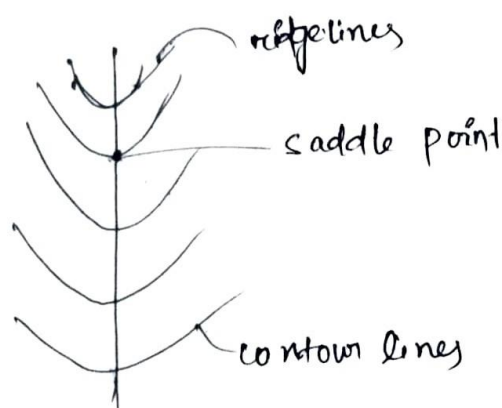 ridgelines
saddle point
contour lines